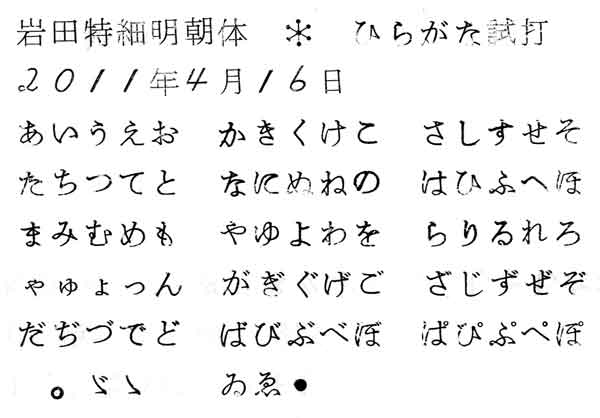 岩田特細明朝体　＊　ひらがた試打
2011年4月16日
あいうえお　かきくけこ　さしすせそ
たちつてと　なにぬねの　はひふへほ
まみむめも　やゆよわを　らりるれろ
ゃゅょっん　がぎぐげご　ざじずぜぞ
だぢづでど　ばびぶべぼ　ぱぴぷぺぽ
。ゞゝ　ゐゑ●